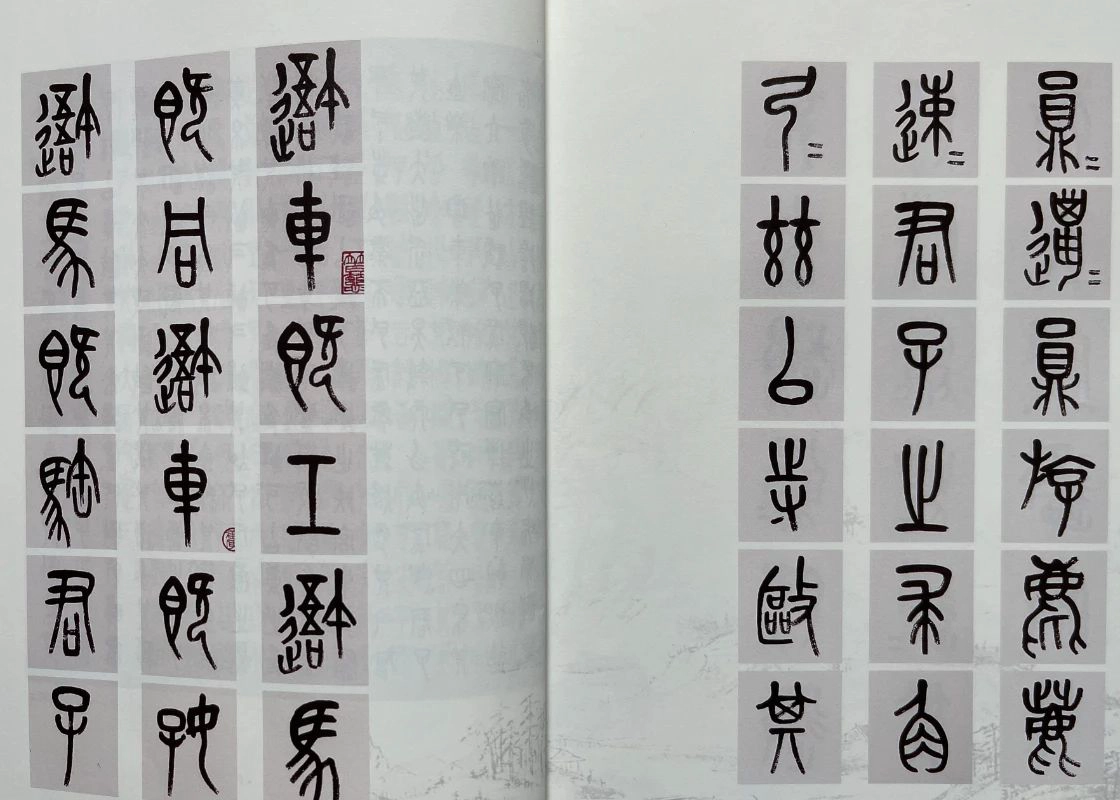 吾車既工吾馬
既同吾車既好
吾馬既𩣡君子
員=邋=員斿麀鹿
速=君子之求角
弓=茲以寺敺其